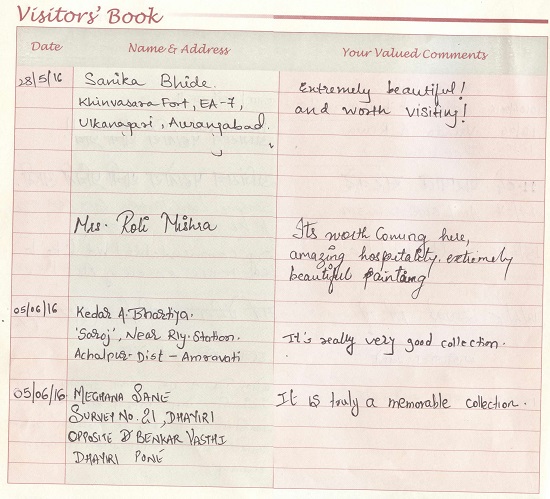 Visitors' Book
Date Name & Address Your Valued Comments
28/5/16 Sanika Bhide. Extremely beautiful!
Khinvasara Fort, EA-7, and worth visiting!
Ulkanagari, Aurangabad.
Mrs. Roli Mishra Its worth Coming here,
amazing hospitality, extremely
beautiful painting
05/06/16 Kedar A. Bhartiya.
'Saroj', Near Rly. Station. It's really very good collection.
Achalpur. Dist - Amravati
05/06/16 MEGHANA SANE It is truly a memorable collection.
SURVEY NO. 21, DHAYIRI
OPPOSITE BENKAR VASTHI
DHAYIRI PUNE